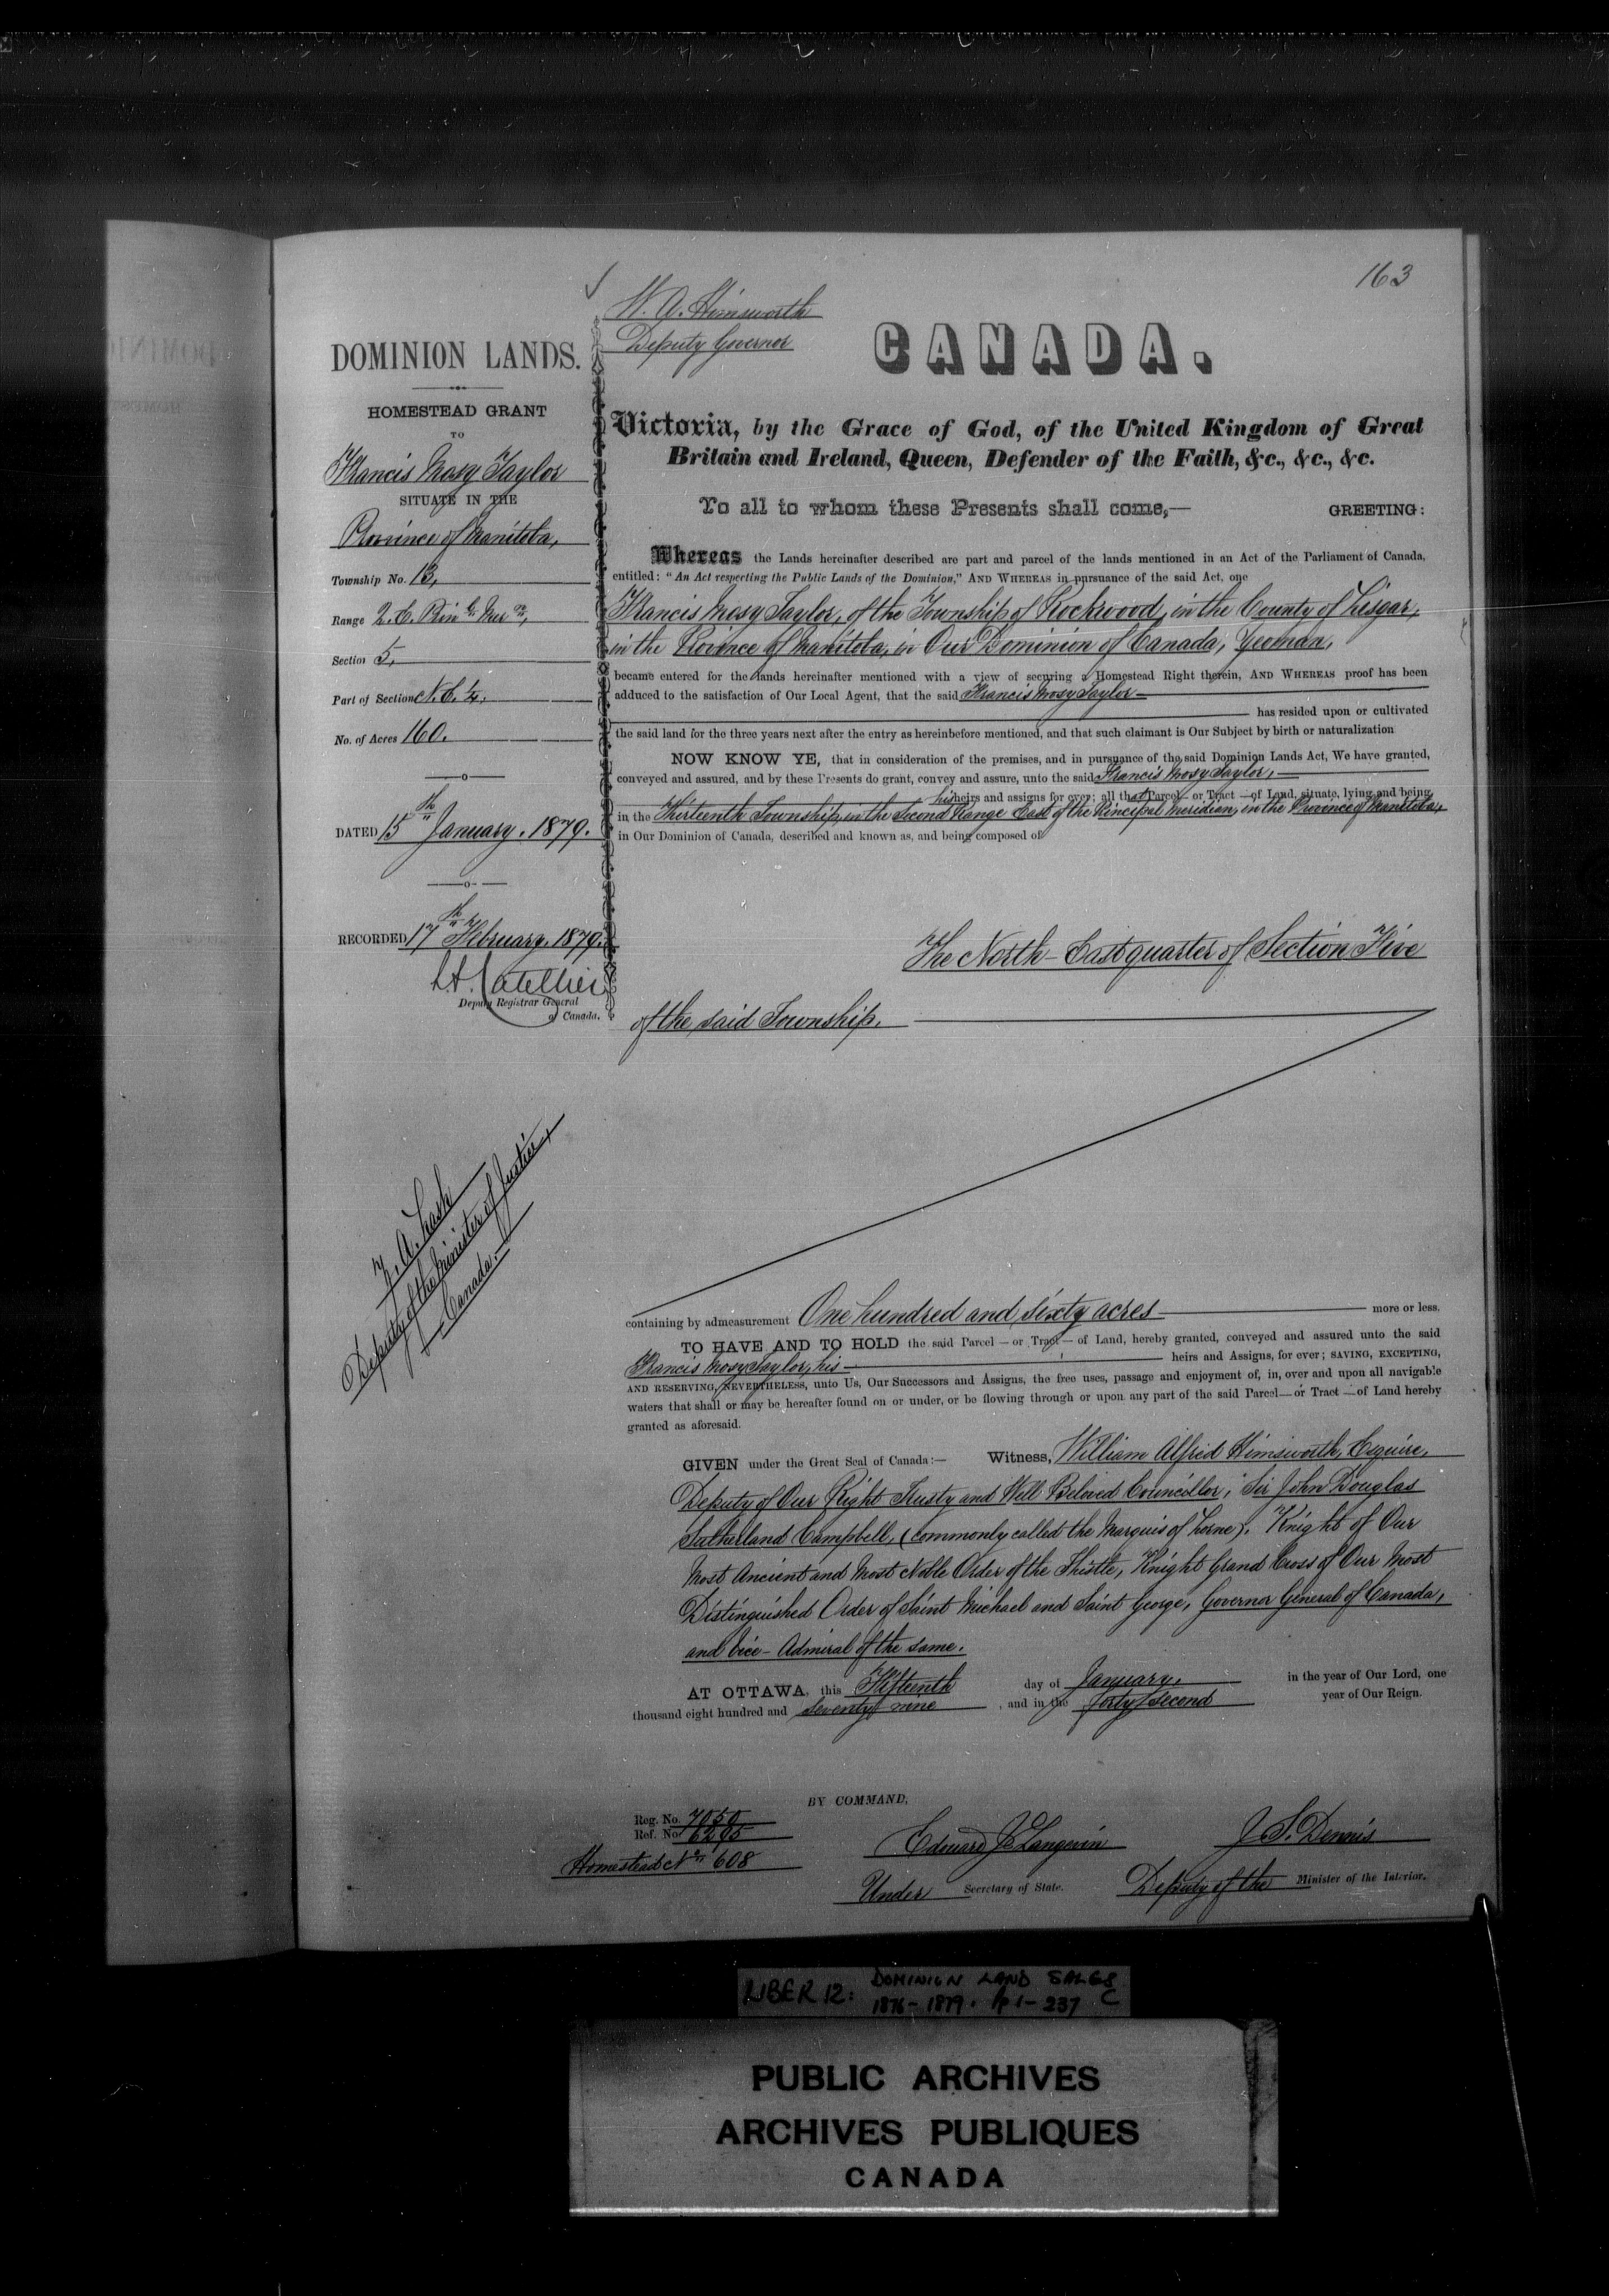 163
W. A. Himsworth
Deputy Governor
CANADA.
DOMINION LANDS.
HOMESTEAD GRANT
TO
Francis Mosy Taylor
SITUATE IN THE
Province of Manitoba,
Township No. 13,
Range 2. E. Prin l. Mer n,
Section 5,
Part of Section N. E. 1/4.
No. of Acres 160.
DATED 15th January. 1879.
RECORDED 17th February. 1879.
Deputy Registrar General
of Canada.
Z. A. Lash
Deputy of the Minister of Justice,
Canada.
Victoria, by the Grace of God, of the United Kingdom of Great
Britain and Ireland, Queen, Defender of the Faith, &c., &c., &c.
To all to whom these Presents shall come,— GREETING:
Whereas the Lands hereinafter described are part and parcel of the lands mentioned in an Act of the Parliament of Canada,
entitled: "An Act respecting the Public Lands of the Dominion," AND WHEREAS in pursuance of the said Act, one
Francis Mosy Taylor, of the Township of Rockwood, in the County of Lisgar,
in the Province of Manitoba, in Our Dominion of Canada, Yeoman,
became entered for the lands hereinafter mentioned with a view of securing a Homestead Right therein, AND WHEREAS proof has been
adduced to the satisfaction of Our Local Agent, that the said Francis Mosy Taylor—
has resided upon or cultivated
the said land for the three years next after the entry as hereinbefore mentioned, and that such claimant is Our Subject by birth or naturalization
NOW KNOW YE, that in consideration of the premises, and in pursuance of the said Dominion Lands Act, We have granted,
conveyed and assured, and by these Presents do grant, convey and assure, unto the said Francis Mosy Taylor,—
his heirs and assigns for ever; all that Parcel— or Tract —of Land, situate, lying and being
in the Thirteenth Township, in the Second Range East of the Principal Meridian, in the Province of Manitoba,
in Our Dominion of Canada, described and known as, and being composed of
The North-East quarter of Section Five
of the said Township.
containing by admeasurement One hundred and sixty acres— more or less.
TO HAVE AND TO HOLD the said Parcel — or Tract — of Land, hereby granted, conveyed and assured unto the said
Francis Mosy Taylor, his— heirs and Assigns, for ever; SAVING, EXCEPTING,
AND RESERVING, NEVERTHELESS, unto Us, Our Successors and Assigns, the free uses, passage and enjoyment of, in, over and upon all navigable
waters that shall or may be hereafter found on or under, or be flowing through or upon any part of the said Parcel—or Tract —of Land hereby
granted as aforesaid.
GIVEN under the Great Seal of Canada:— Witness, William Alfred Himsworth, Esquire,
Deputy of Our Right Trusty and Well Beloved Councillor, Sir John Douglas
Sutherland Campbell, (commonly called the Marquis of Lorne). Knight of Our
Most Ancient and Most Noble Order of the Thistle, Knight Grand Cross of Our Most
Distinguished Order of Saint Michael and Saint George, Governor General of Canada,
and Vice-Admiral of the same.
AT OTTAWA, this Fifteenth day of January, in the year of Our Lord, one
thousand eight hundred and seventy nine, and in the forty second year of Our Reign.
BY COMMAND,
Reg. No. 7050
Ref. No. 6295
Homestead No. 608
Edouard J. Langevin
Under Secretary of State.
J. S. Dennis
Deputy of the Minister of the Interior.
LIBER 12: DOMINION LAND SALES
1876-1879. pp 1-237 C
PUBLIC ARCHIVES
ARCHIVES PUBLIQUES
CANADA